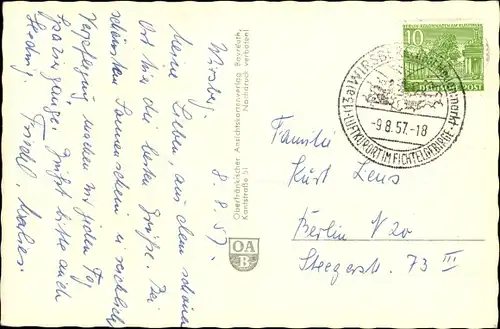 Wirsberg, 8.8.57.
Meine Lieben, aus dem schönen
Ort hier die besten Grüße. Bei
schönstem Sonnenschein u. reichlich
Verpflegung machen wir jeden Tag
Spaziergänge. Grüßt bitte auch
Hedwig. Friedel,
Oberfränkischer Ansichtskartenverlag Bayreuth,
Kantstraße 51 Nachdruck verboten!
OA
B
10
POST
WIRSBERG
-9.8.57.-18
LUFTKURORT IM FICHTELGEBIRGE
Familie
Kurt Lens
Berlin N 20
Steegerstr. 73 III